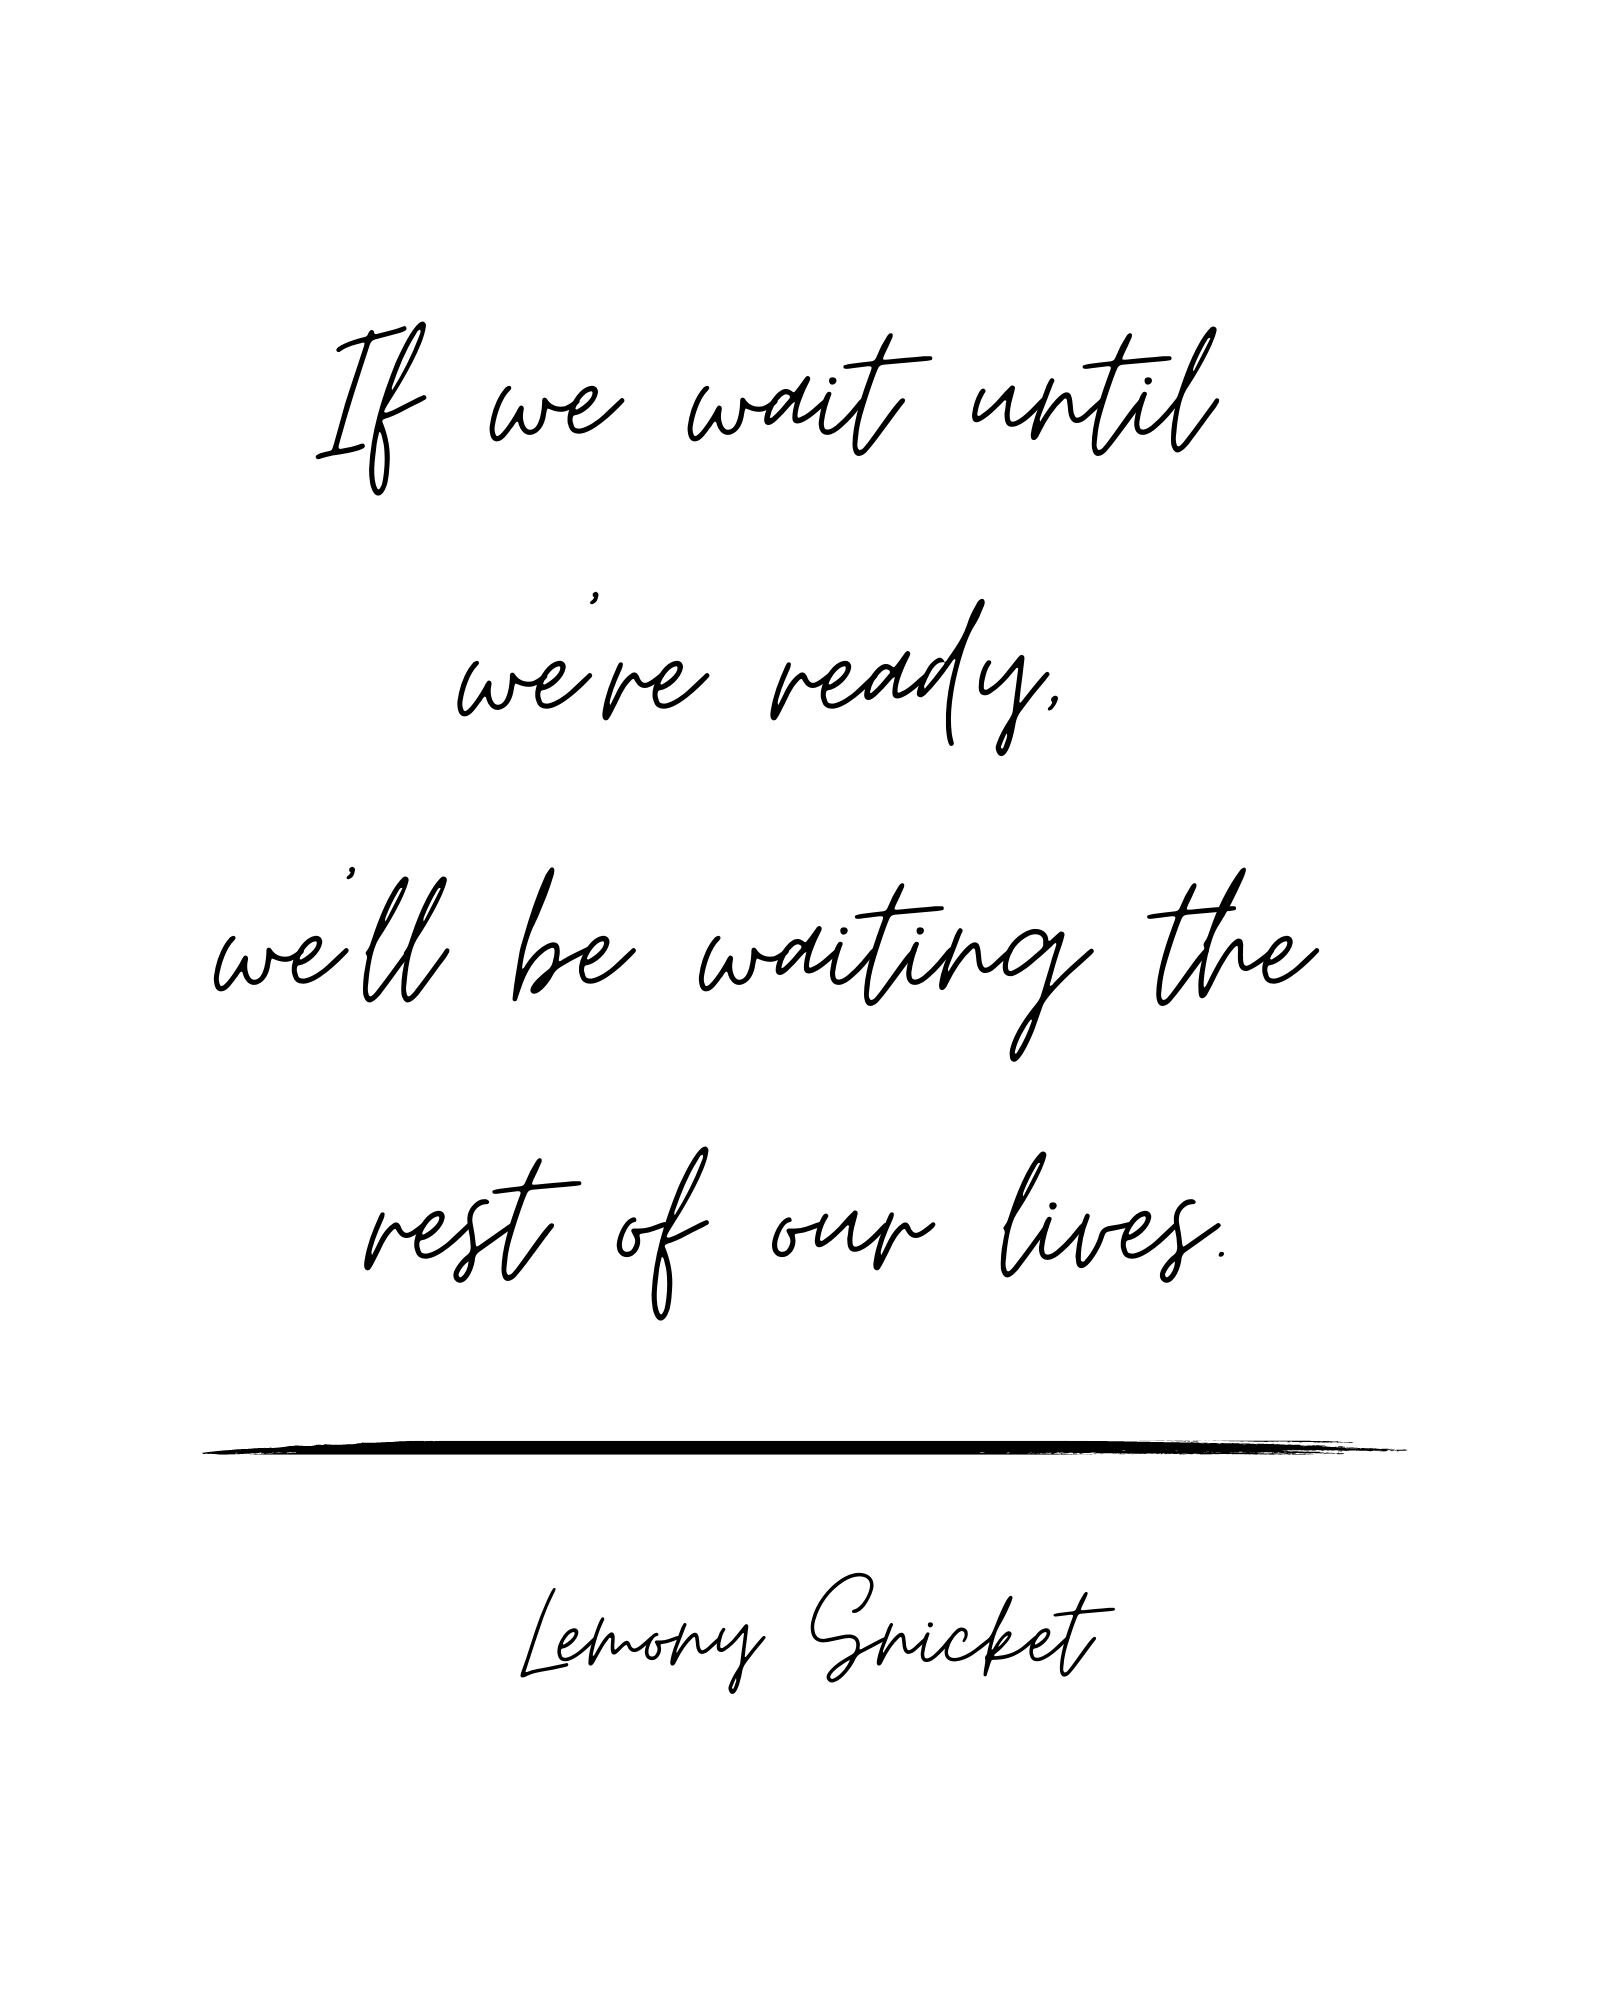 If we wait until
we're ready,
we'll be waiting the
rest of our lives.
Lemony Snicket